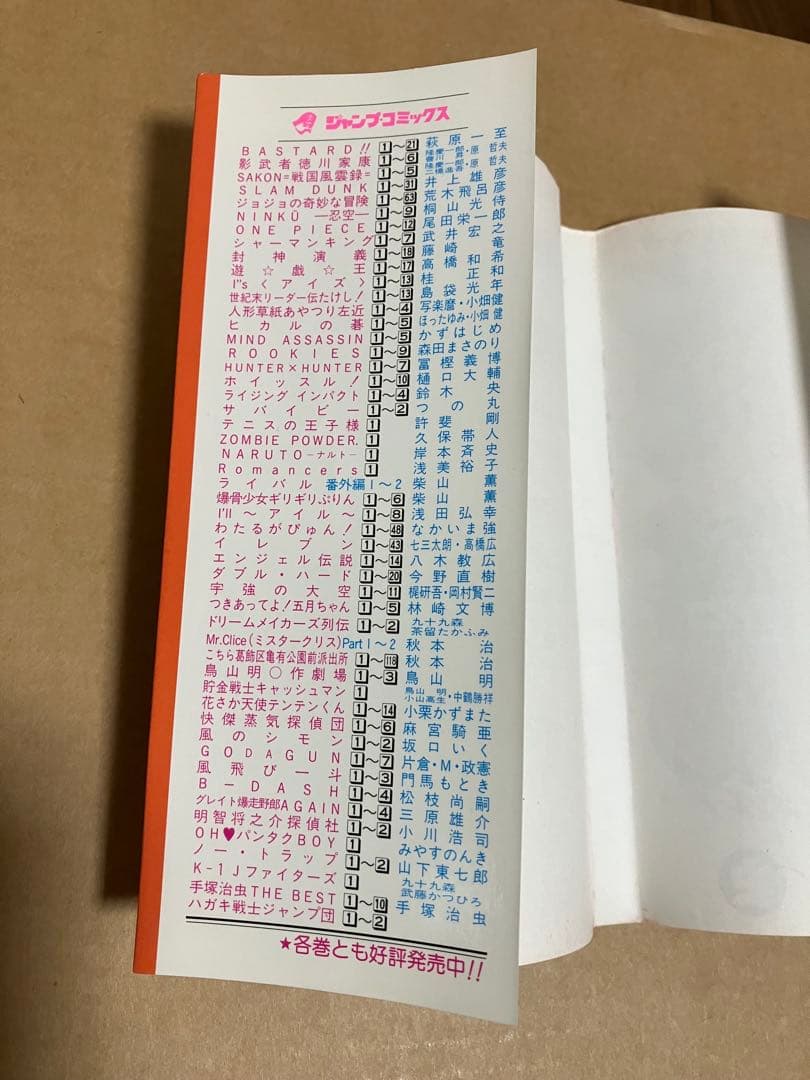 ジャンプ・コミックス
BASTARD!! 1〜21 萩原一至
影武者徳川家康 1〜6 隆慶一郎・原哲夫
SAKON=戦国風雲録= 1〜5 隆慶一郎・原哲夫
SLAM DUNK 1〜31 井上雄彦
ジョジョの奇妙な冒険 1〜63 荒木飛呂彦
NINKŪ —忍空— 1〜9 桐山光侍
ONE PIECE 1〜12 尾田栄一郎
シャーマンキング 1〜7 武井宏之
封神演義 1〜18 藤崎竜
遊☆戯☆王 1〜17 高橋和希
I"s〈アイズ〉 1〜13 桂正和
世紀末リーダー伝たけし! 1〜13 島袋光年
人形草紙あやつり左近 1〜4 写楽麿・小畑健
ヒカルの碁 1〜5 ほったゆみ・小畑健
MIND ASSASSIN 1〜5 かずはじめ
ROOKIES 1〜9 森田まさのり
HUNTER×HUNTER 1〜7 冨樫義博
ホイッスル! 1〜10 樋口大輔
ライジング インパクト 1〜4 鈴木央
サバイビー 1〜2 つの丸
テニスの王子様 1 許斐剛
ZOMBIE POWDER. 1 久保帯人
NARUTO—ナルト— 1 岸本斉史
Romancers 1 浅美裕子
ライバル 番外編1〜2 柴山薫
爆骨少女ギリギリぷりん 1〜6 柴山薫
I'll 〜アイル〜 1〜8 浅田弘幸
わたるがぴゅん! 1〜48 なかいま強
イレブン 1〜43 七三太朗・高橋広
エンジェル伝説 1〜14 八木教広
ダブル・ハード 1〜20 今野直樹
宇強の大空 1〜11 梶研吾・岡村賢二
つきあってよ!五月ちゃん 1〜5 林崎文博
ドリームメイカーズ列伝 1〜2 九十九森 茶留たかふみ
Mr.Clice(ミスタークリス) Part1〜2 秋本治
こちら葛飾区亀有公園前派出所 1〜118 秋本治
鳥山明○作劇場 1〜3 鳥山明
貯金戦士キャッシュマン 1 鳥山明 小山高生・中鶴勝祥
花さか天使テンテンくん 1〜14 小栗かずまた
快傑蒸気探偵団 1〜6 麻宮騎亜
風のシモン 1〜2 坂口いく
GODAGUN 1〜7 片倉・M・政憲
風飛び一斗 1〜3 門馬もとき
B−DASH 1〜4 松枝尚嗣
グレイト爆走野郎AGAIN 1〜4 三原雄介
明智将之介探偵社 1〜2 小川浩司
OH♥パンタクBOY 1 みやすのんき
ノー・トラップ 1〜2 山下東七郎
K-1Jファイターズ 1 九十九森 武藤かつひろ
手塚治虫THE BEST 1〜10 手塚治虫
ハガキ戦士ジャンプ団 1〜2
★各巻とも好評発売中!!